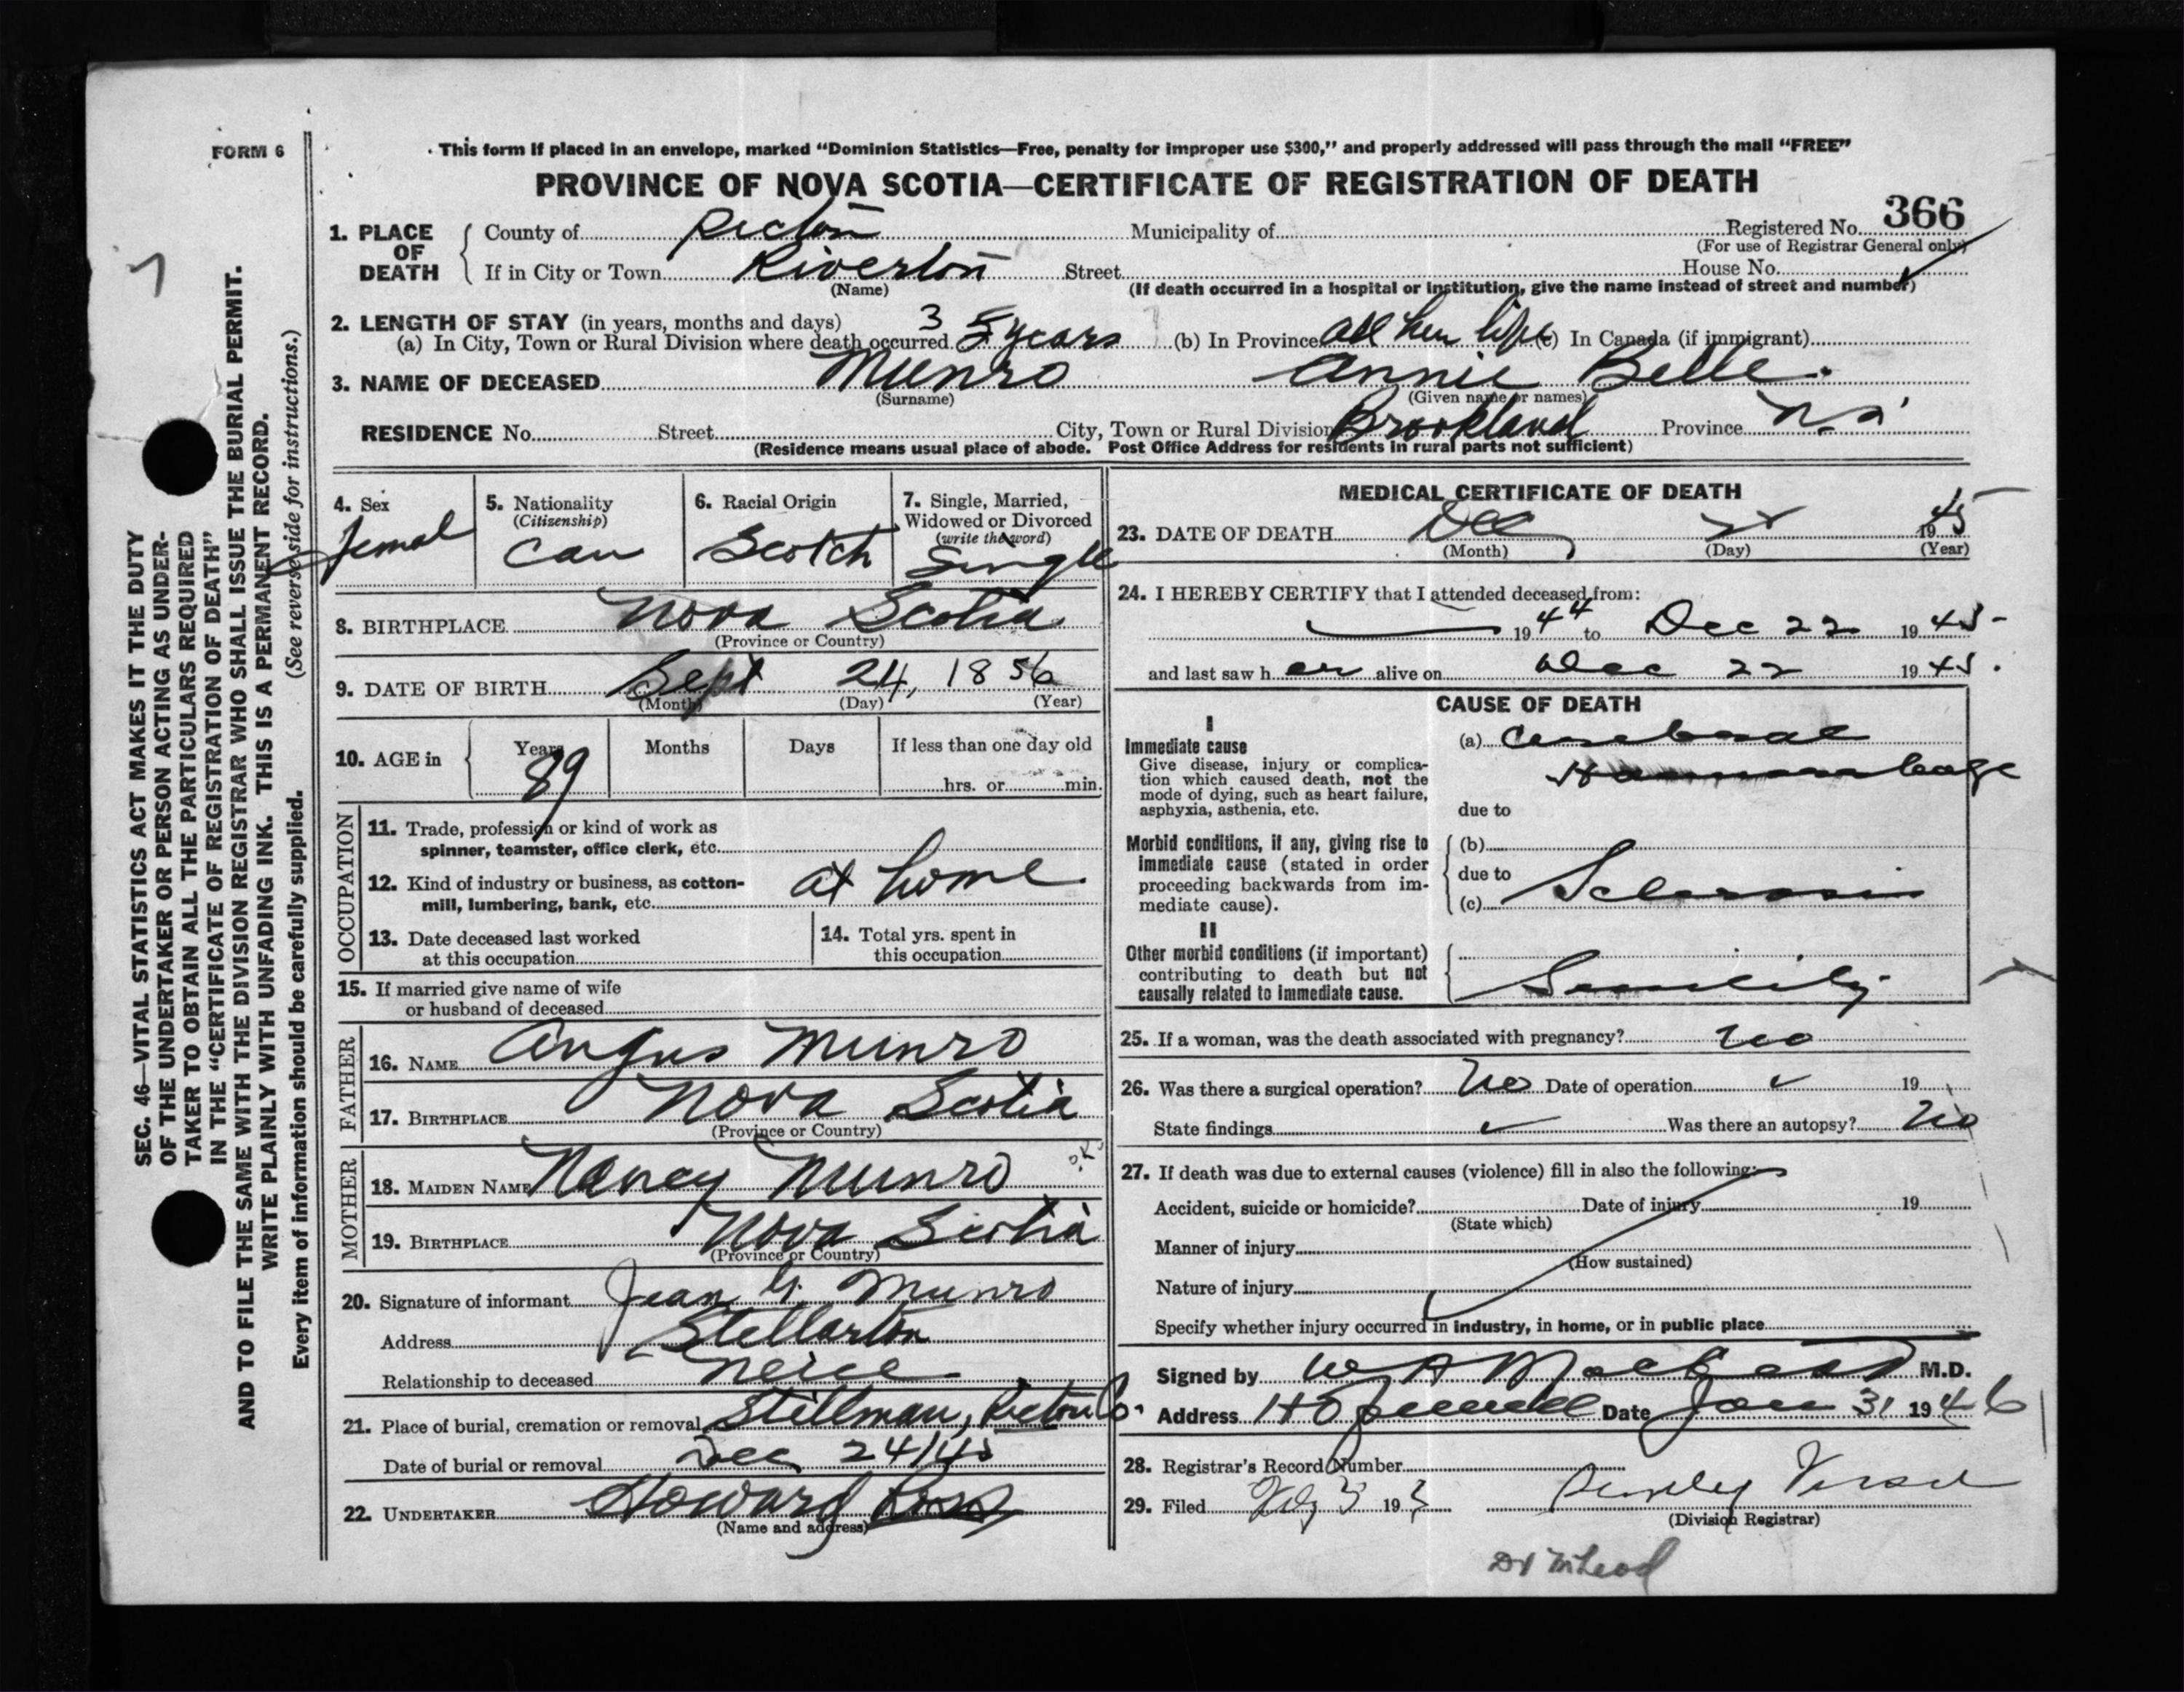 FORM 6
· This form if placed in an envelope, marked “Dominion Statistics—Free, penalty for improper use $300,” and properly addressed will pass through the mail “FREE”
PROVINCE OF NOVA SCOTIA—CERTIFICATE OF REGISTRATION OF DEATH
1. PLACE OF DEATH
County of Pictou Municipality of Registered No. 366
(For use of Registrar General only)
If in City or Town Riverton Street House No.
(Name) (If death occurred in a hospital or institution, give the name instead of street and number)
2. LENGTH OF STAY (in years, months and days)
(a) In City, Town or Rural Division where death occurred 3 5 years (b) In Province all her life (c) In Canada (if immigrant)
3. NAME OF DECEASED Munro Annie Belle.
(Surname) (Given name or names)
RESIDENCE No. Street City, Town or Rural Division Brookland Province N.S.
(Residence means usual place of abode. Post Office Address for residents in rural parts not sufficient)
4. Sex
femal
5. Nationality
(Citizenship)
Can
6. Racial Origin
Scotch
7. Single, Married,
Widowed or Divorced
(write the word)
Single
8. BIRTHPLACE Nova Scotia
(Province or Country)
9. DATE OF BIRTH Sept 24, 1856
(Month) (Day) (Year)
10. AGE in Years Months Days If less than one day old
89 hrs. or min.
OCCUPATION
11. Trade, profession or kind of work as
spinner, teamster, office clerk, etc.
12. Kind of industry or business, as cotton-
mill, lumbering, bank, etc. at home
13. Date deceased last worked
at this occupation
14. Total yrs. spent in
this occupation
15. If married give name of wife
or husband of deceased
FATHER
16. NAME Angus Munro
17. BIRTHPLACE Nova Scotia
(Province or Country)
MOTHER
18. MAIDEN NAME Nancy Munro o.K.
19. BIRTHPLACE Nova Scotia
(Province or Country)
20. Signature of informant Jean G. Munro
Address Stellarton
Relationship to deceased neice
21. Place of burial, cremation or removal Stillman, Pictou Co.
Date of burial or removal Dec 24/45
22. UNDERTAKER Howard
(Name and address)
MEDICAL CERTIFICATE OF DEATH
23. DATE OF DEATH Dec 22 1945
(Month) (Day) (Year)
24. I HEREBY CERTIFY that I attended deceased from:
1944 to Dec 22 1945
and last saw her alive on Dec 22 1945.
CAUSE OF DEATH
I
Immediate cause
Give disease, injury or complica-
tion which caused death, not the
mode of dying, such as heart failure,
asphyxia, asthenia, etc.
(a) Cerebral
Haemorrhage
due to
Morbid conditions, if any, giving rise to
immediate cause (stated in order
proceeding backwards from im-
mediate cause).
(b)
due to
(c) Sclerosis
II
Other morbid conditions (if important)
contributing to death but not
causally related to immediate cause.
Senility
25. If a woman, was the death associated with pregnancy? no
26. Was there a surgical operation? No Date of operation 19
State findings Was there an autopsy? No
27. If death was due to external causes (violence) fill in also the following:
Accident, suicide or homicide? Date of injury 19
(State which)
Manner of injury
(How sustained)
Nature of injury
Specify whether injury occurred in industry, in home, or in public place
Signed by W A MacLeod M.D.
Address Hopewell Date Jan 31 1946
28. Registrar's Record Number
29. Filed 19
(Division Registrar)
Dr McLeod
SEC. 46—VITAL STATISTICS ACT MAKES IT THE DUTY
OF THE UNDERTAKER OR PERSON ACTING AS UNDER-
TAKER TO OBTAIN ALL THE PARTICULARS REQUIRED
IN THE “CERTIFICATE OF REGISTRATION OF DEATH”
AND TO FILE THE SAME WITH THE DIVISION REGISTRAR WHO SHALL ISSUE THE BURIAL PERMIT.
WRITE PLAINLY WITH UNFADING INK. THIS IS A PERMANENT RECORD.
Every item of information should be carefully supplied. (See reverse side for instructions.)